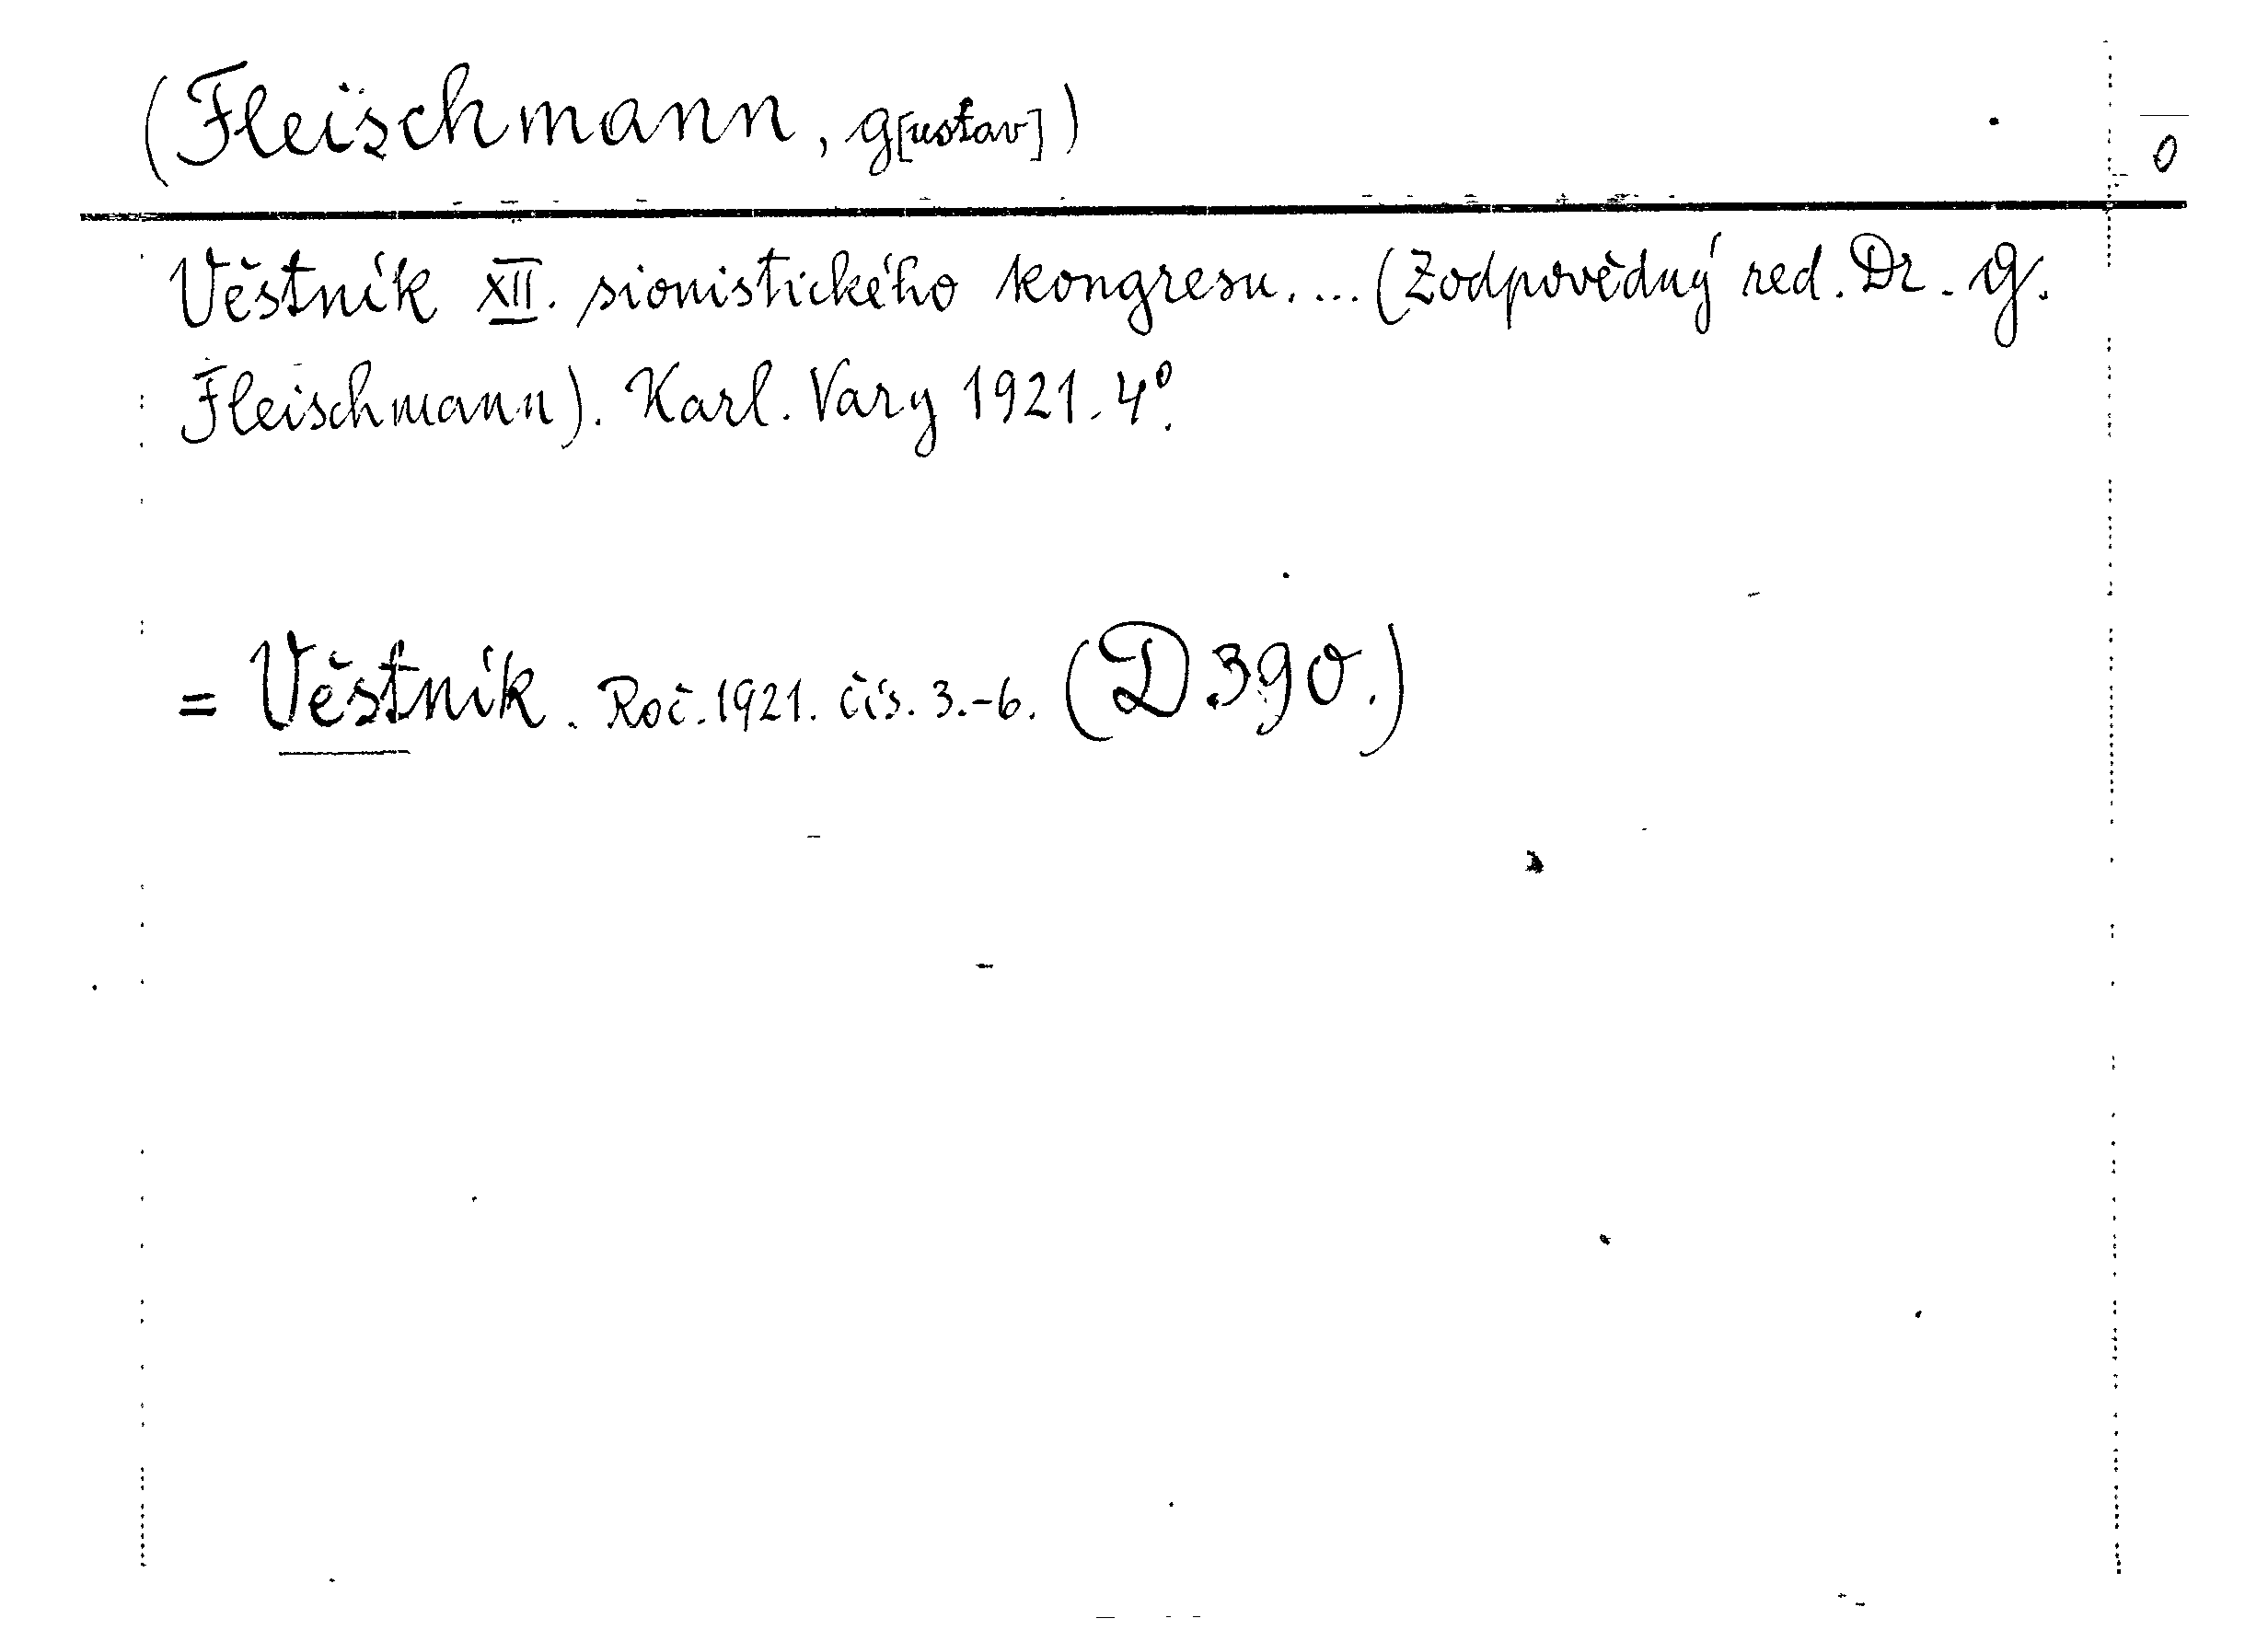 (Fleischmann, G[ustav])
0
Věstník XII. sionistického kongresu. ... (Zodpovědný red. Dr. G.
Fleischmann). Karl. Vary 1921. 4°.
= Věstník. Roč. 1921. čís. 3.-6. (D 390.)